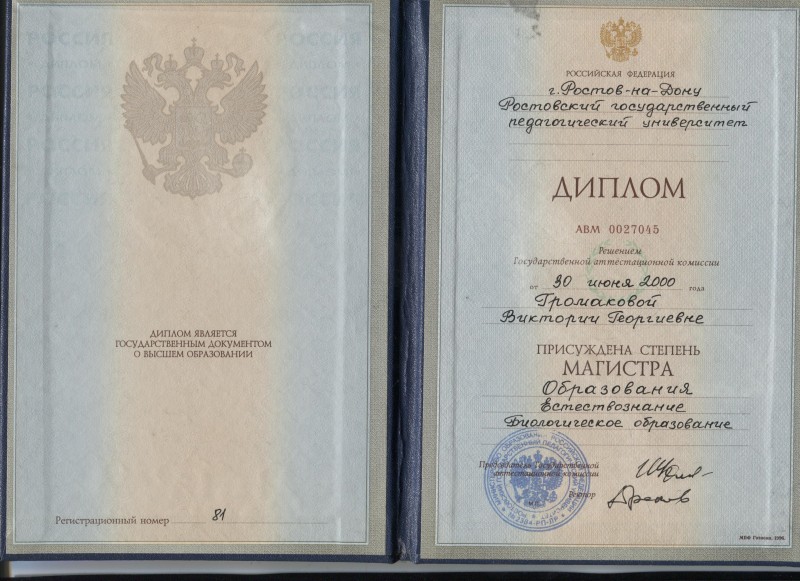 ДИПЛОМ ЯВЛЯЕТСЯ
ГОСУДАРСТВЕННЫМ ДОКУМЕНТОМ
О ВЫСШЕМ ОБРАЗОВАНИИ
Регистрационный номер 81
РОССИЙСКАЯ ФЕДЕРАЦИЯ
г. Ростов-на-Дону
Ростовский государственный
педагогический университет
ДИПЛОМ
АВМ 0027045
Решением
Государственной аттестационной комиссии
от 30 июня 2000 года
Громаковой
Виктории Георгиевне
ПРИСУЖДЕНА СТЕПЕНЬ
МАГИСТРА
Образования
Естествознание
Биологическое образование
Председатель Государственной
аттестационной комиссии
Ректор